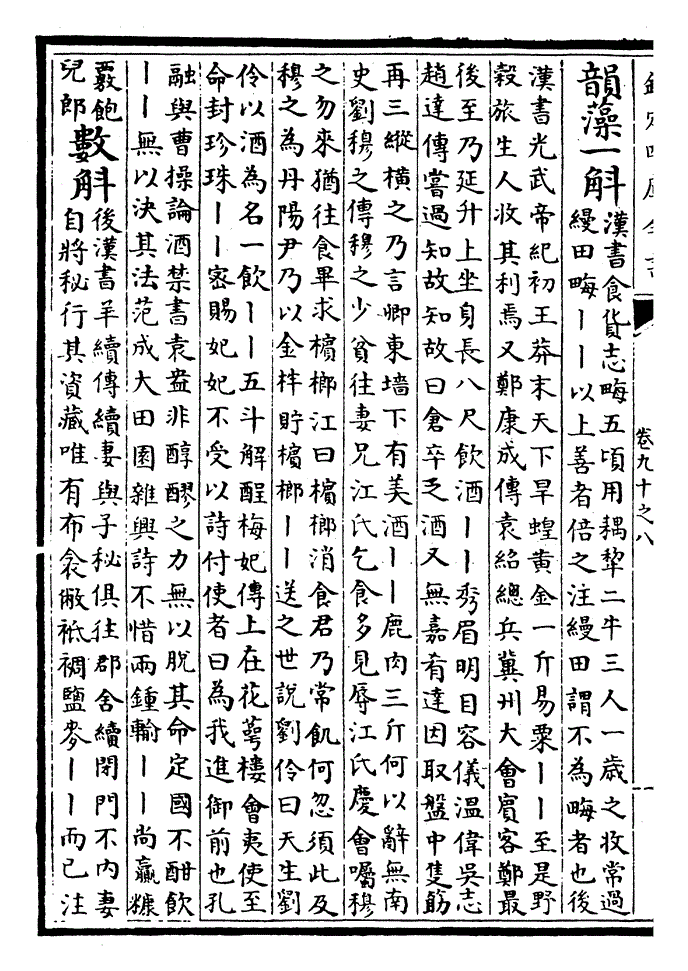 欽定四庫全書
卷九十之八
一
韻藻一斛
漢書食貨志畮五頃用耦犂二牛三人一歲之收常過
縵田畮丨丨以上善者倍之注縵田謂不為畮者也後
漢書光武帝紀初王莽末天下旱蝗黃金一斤易粟丨丨至是野
穀旅生人收其利焉又鄭康成傳袁紹總兵冀州大會賓客鄭最
後至乃延升上坐身長八尺飲酒丨丨秀眉明目容儀溫偉吳志
趙達傳嘗過知故知故曰倉卒乏酒又無嘉肴達因取盤中隻筯
再三縱橫之乃言卿東墻下有美酒丨丨鹿肉三斤何以辭無南
史劉穆之傳穆之少貧往妻兄江氏乞食多見辱江氏慶會囑穆
之勿來猶往食畢求檳榔江曰檳榔消食君乃常飢何忽須此及
穆之為丹陽尹乃以金柈貯檳榔丨丨送之世說劉伶曰天生劉
伶以酒為名一飲丨丨五斗解酲梅妃傳上在花萼樓會夷使至
命封珍珠丨丨密賜妃妃不受以詩付使者曰為我進御前也孔
融與曹操論酒禁書袁盎非醇醪之力無以脫其命定國不酣飲
丨丨無以決其法范成大田園雜興詩不惜兩鍾輸丨丨尚贏糠
覈飽
兒郎
數斛
後漢書羊續傳續妻與子秘俱往郡舍續閉門不內妻
自將秘行其資藏唯有布衾敝袛裯鹽麥丨丨而已注